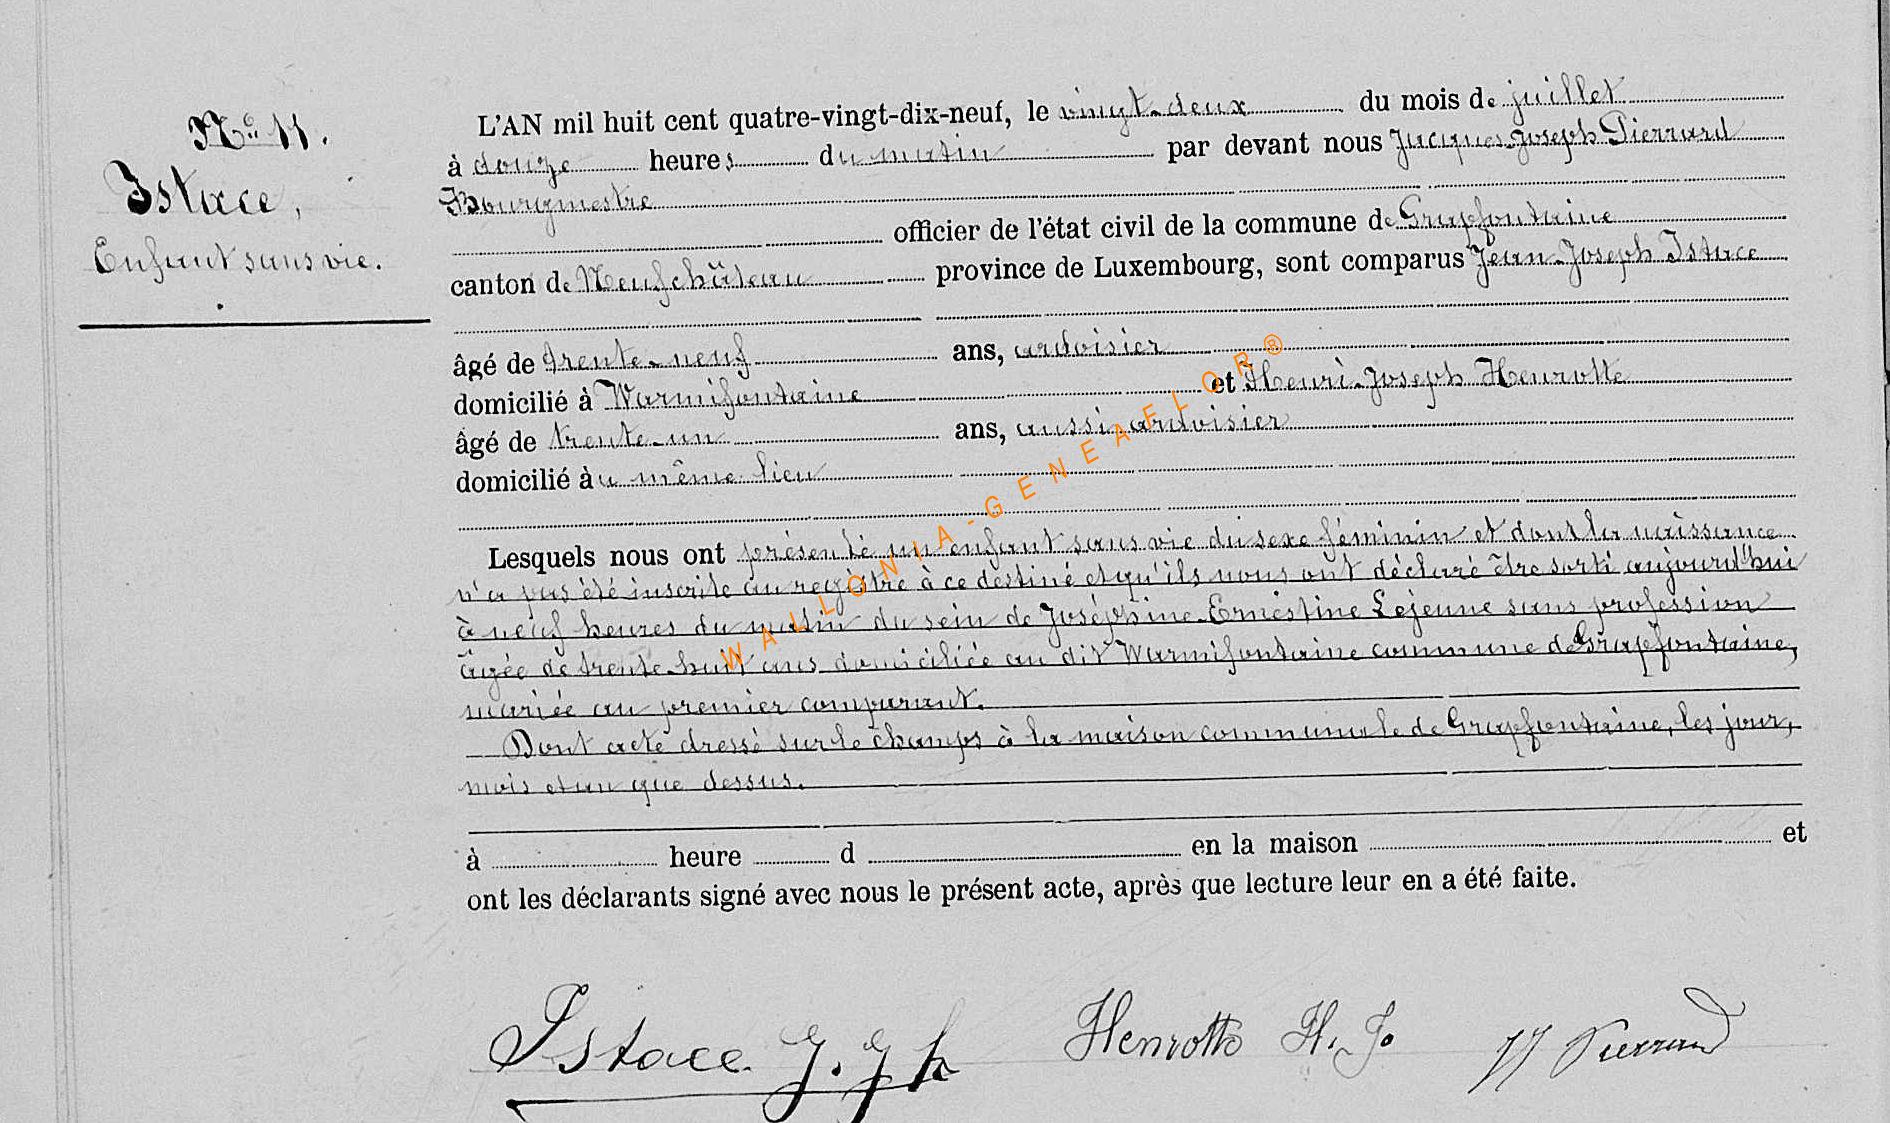 N° 11.
Istace,
Enfant sans vie.
L'AN mil huit cent quatre-vingt-dix-neuf, le vingt-deux du mois de juillet
à douze heures du matin par devant nous Jacques-Joseph Pierrard
Bourgmestre
officier de l'état civil de la commune de Grapfontaine
canton de Neufchâteau province de Luxembourg, sont comparus Jean-Joseph Istace
âgé de trente-neuf ans, ardoisier
domicilié à Warmifontaine et Henri-Joseph Henrotte
âgé de trente-un ans, aussi ardoisier
domicilié au même lieu
Lesquels nous ont présenté un enfant sans vie du sexe féminin et dont la naissance
n'a pas été inscrite au registre à ce destiné et qu'ils nous ont déclaré être sorti aujourd'hui
à neuf heures du matin du sein de Joséphine-Ernestine Lejeune sans profession
âgée de trente-huit ans domiciliée au dit Warmifontaine commune de Grapfontaine,
mariée au premier comparant.
Dont acte dressé sur le champs à la maison communale de Grapfontaine, les jour,
mois et an que dessus.
à heure d en la maison et
ont les déclarants signé avec nous le présent acte, après que lecture leur en a été faite.
Istace. J. Jh Henrotte H. J. JJ Pierrard
WALLONIA-GENEAFLOR®